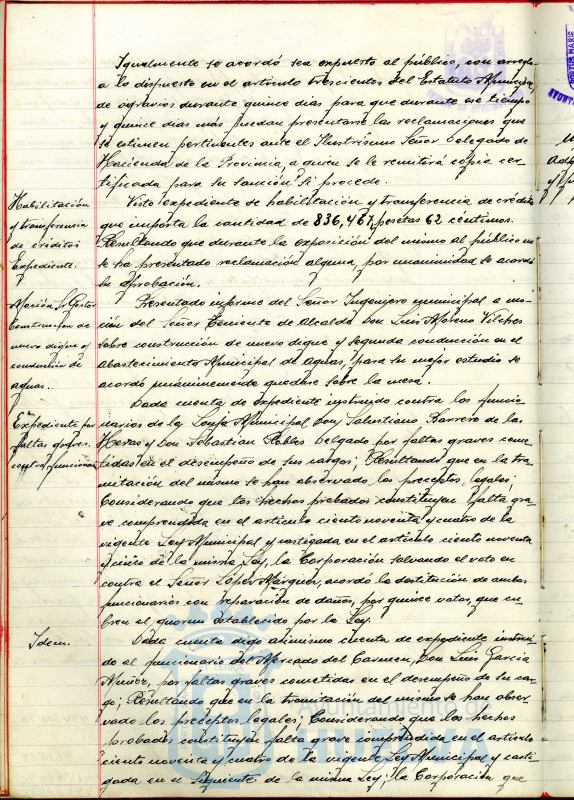 Igualmente se acordó sea expuesto al público, con arreglo
a lo dispuesto en el artículo trescientos del Estatuto Municipal,
de agravios durante quince días para que durante ese tiempo
y quince días mas puedan presentarse las reclamaciones que
se estimen pertinentes ante el Ilustrísimo Señor Delegado de
Hacienda de la Provincia, a quien se le remitirá copia cer-
tificada para su sanción si procede.
Habilitación
y transferencia
de créditos
Expediente.
Visto expediente de habilitación y transferencia de crédito
que importa la cantidad de 836,467 pesetas 62 céntimos.
Resultando que durante la exposición del mismo al público no
se ha presentado reclamación alguna, por unanimidad se acordó
su aprobación.
Moción Sr Gestor
construcción de
nuevo dique y
conducción de
aguas.
Presentado informe del Señor Ingeniero municipal a mo-
ción del Señor Teniente de Alcalde Don Luis Moreno Vilches
sobre construcción de nuevo dique y segunda conducción en el
abastecimiento Municipal de aguas, para su mejor estudio se
acordó unánimemente quedase sobre la mesa.
Expediente por
faltas graves
contra funcionarios
Dada cuenta de expediente instruido contra los funcio-
narios de la Lonja Municipal Don Salustiano Barrero de las
Heras y Don Sebastian Robles Delgado por faltas graves come-
tidas en el desempeño de sus cargos; Resultando que en la tra-
mitación del mismo se han observado los preceptos legales;
Considerando que los hechos probados constituyen falta gra-
ve comprendida en el artículo ciento noventa y cuatro de la
vigente Ley Municipal y castigada en el artículo ciento noventa
y cinco de la misma Ley, la Corporación salvando el voto en
contra el Señor López Márquez, acordó la destitución de ambos
funcionarios con reparación de daños, por quince votos, que cu-
bren el quorum establecido por la Ley.
Idem.
Dada cuenta digo asimismo cuenta de expediente instrui-
do al funcionario del Mercado del Carmen, Don Luis García
Muñoz, por faltas graves cometidas en el desempeño de su car-
go; Resultando que en la tramitación del mismo se han obser-
vado los preceptos legales; Considerando que los hechos
probados constituyen falta grave comprendida en el artículo
ciento noventa y cuatro de la vigente Ley Municipal y casti-
gada en el siguiente de la misma Ley; la Corporación que
Ayuntamiento de
HUELVA